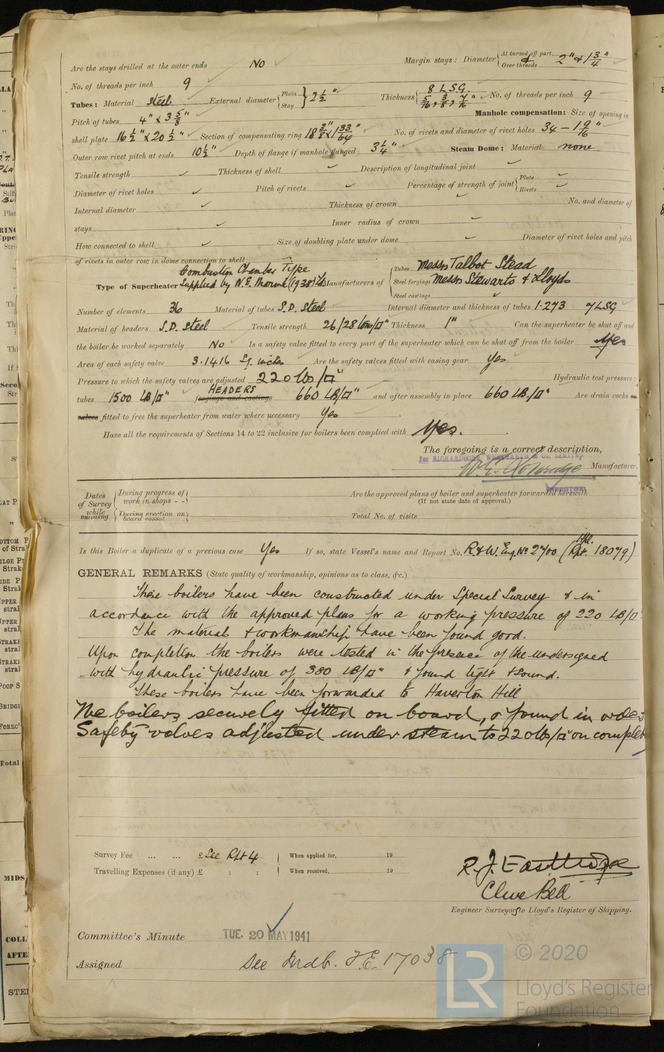 Are the stays drilled at the outer ends No Margin stays: Diameter { At turned off part, or Over threads 2" & 1 3/4"
No. of threads per inch 9
Tubes: Material Steel External diameter { Plain Stay } 2 1/2" Thickness { 8 LSG 5/16, 3/8, 7/16" No. of threads per inch 9
Pitch of tubes 4" x 3 5/8" Manhole compensation: Size of opening in
shell plate 16 1/2" x 20 1/2" Section of compensating ring No. of rivets and diameter of rivet holes 34 - 1 9/16"
Outer row rivet pitch at ends 10 1/2" Depth of flange if manhole flanged 3 1/4" Steam Dome: Material none
Tensile strength Thickness of shell Description of longitudinal joint
Diameter of rivet holes Pitch of rivets Percentage of strength of joint { Plate Rivets
Internal diameter Thickness of crown No. and diameter of
stays Inner radius of crown
How connected to shell Size of doubling plate under dome Diameter of rivet holes and pitch
of rivets in outer row in dome connection to shell
Type of Superheater Combustion Chamber Type Supplied by N.E. Marine (1938) Ltd Manufacturers of { Tubes Messrs Talbot Stead
Steel forgings Messrs Stewarts & Lloyds
Steel castings
Number of elements 36 Material of tubes S.D. Steel Internal diameter and thickness of tubes 1.273 7 LSG
Material of headers S.D. Steel Tensile strength 26/28 tons/□" Thickness 1" Can the superheater be shut off and
the boiler be worked separately No Is a safety valve fitted to every part of the superheater which can be shut off from the boiler Yes
Area of each safety valve 3.1416 Sq. inches Are the safety valves fitted with easing gear Yes
Pressure to which the safety valves are adjusted 220 lbs/□" Hydraulic test pressure:
tubes 1500 LB/□" forgings and castings HEADERS 660 LB/□" and after assembly in place 660 LB/□" Are drain cocks or
valves fitted to free the superheater from water where necessary Yes
Have all the requirements of Sections 14 to 22 inclusive for boilers been complied with Yes.
The foregoing is a correct description,
Manufacturer.
Dates of Survey while building { During progress of work in shops - - Are the approved plans of boiler and superheater forwarded herewith
(If not state date of approval.)
During erection on board vessel Total No. of visits
Is this Boiler a duplicate of a previous case Yes If so, state Vessel's name and Report No. R & W. Eng No 2700 (Rpt. 18079)
GENERAL REMARKS (State quality of workmanship, opinions as to class, &c.)
These boilers have been constructed under Special Survey & in
accordance with the approved plans for a working pressure of 220 LB/□"
The material & workmanship have been found good.
Upon completion the boilers were tested in the presence of the undersigned
with hydraulic pressure of 380 LB/□" & found tight & sound.
These boilers have been forwarded to Haverton Hill
The boilers securely fitted on board, & found in order
Safety valves adjusted under steam to 220 lbs/□" on comple
Survey Fee ... ... £ See Rpt 4 When applied for, 19
Travelling Expenses (if any) £ : : When received, 19
Clive Bell
Engineer Surveyor to Lloyd's Register of Shipping.
Committee's Minute TUE. 20 MAY 1941
Assigned See Mdb. F.E. 17038
LR © 2020
Lloyd's Register
Foundation